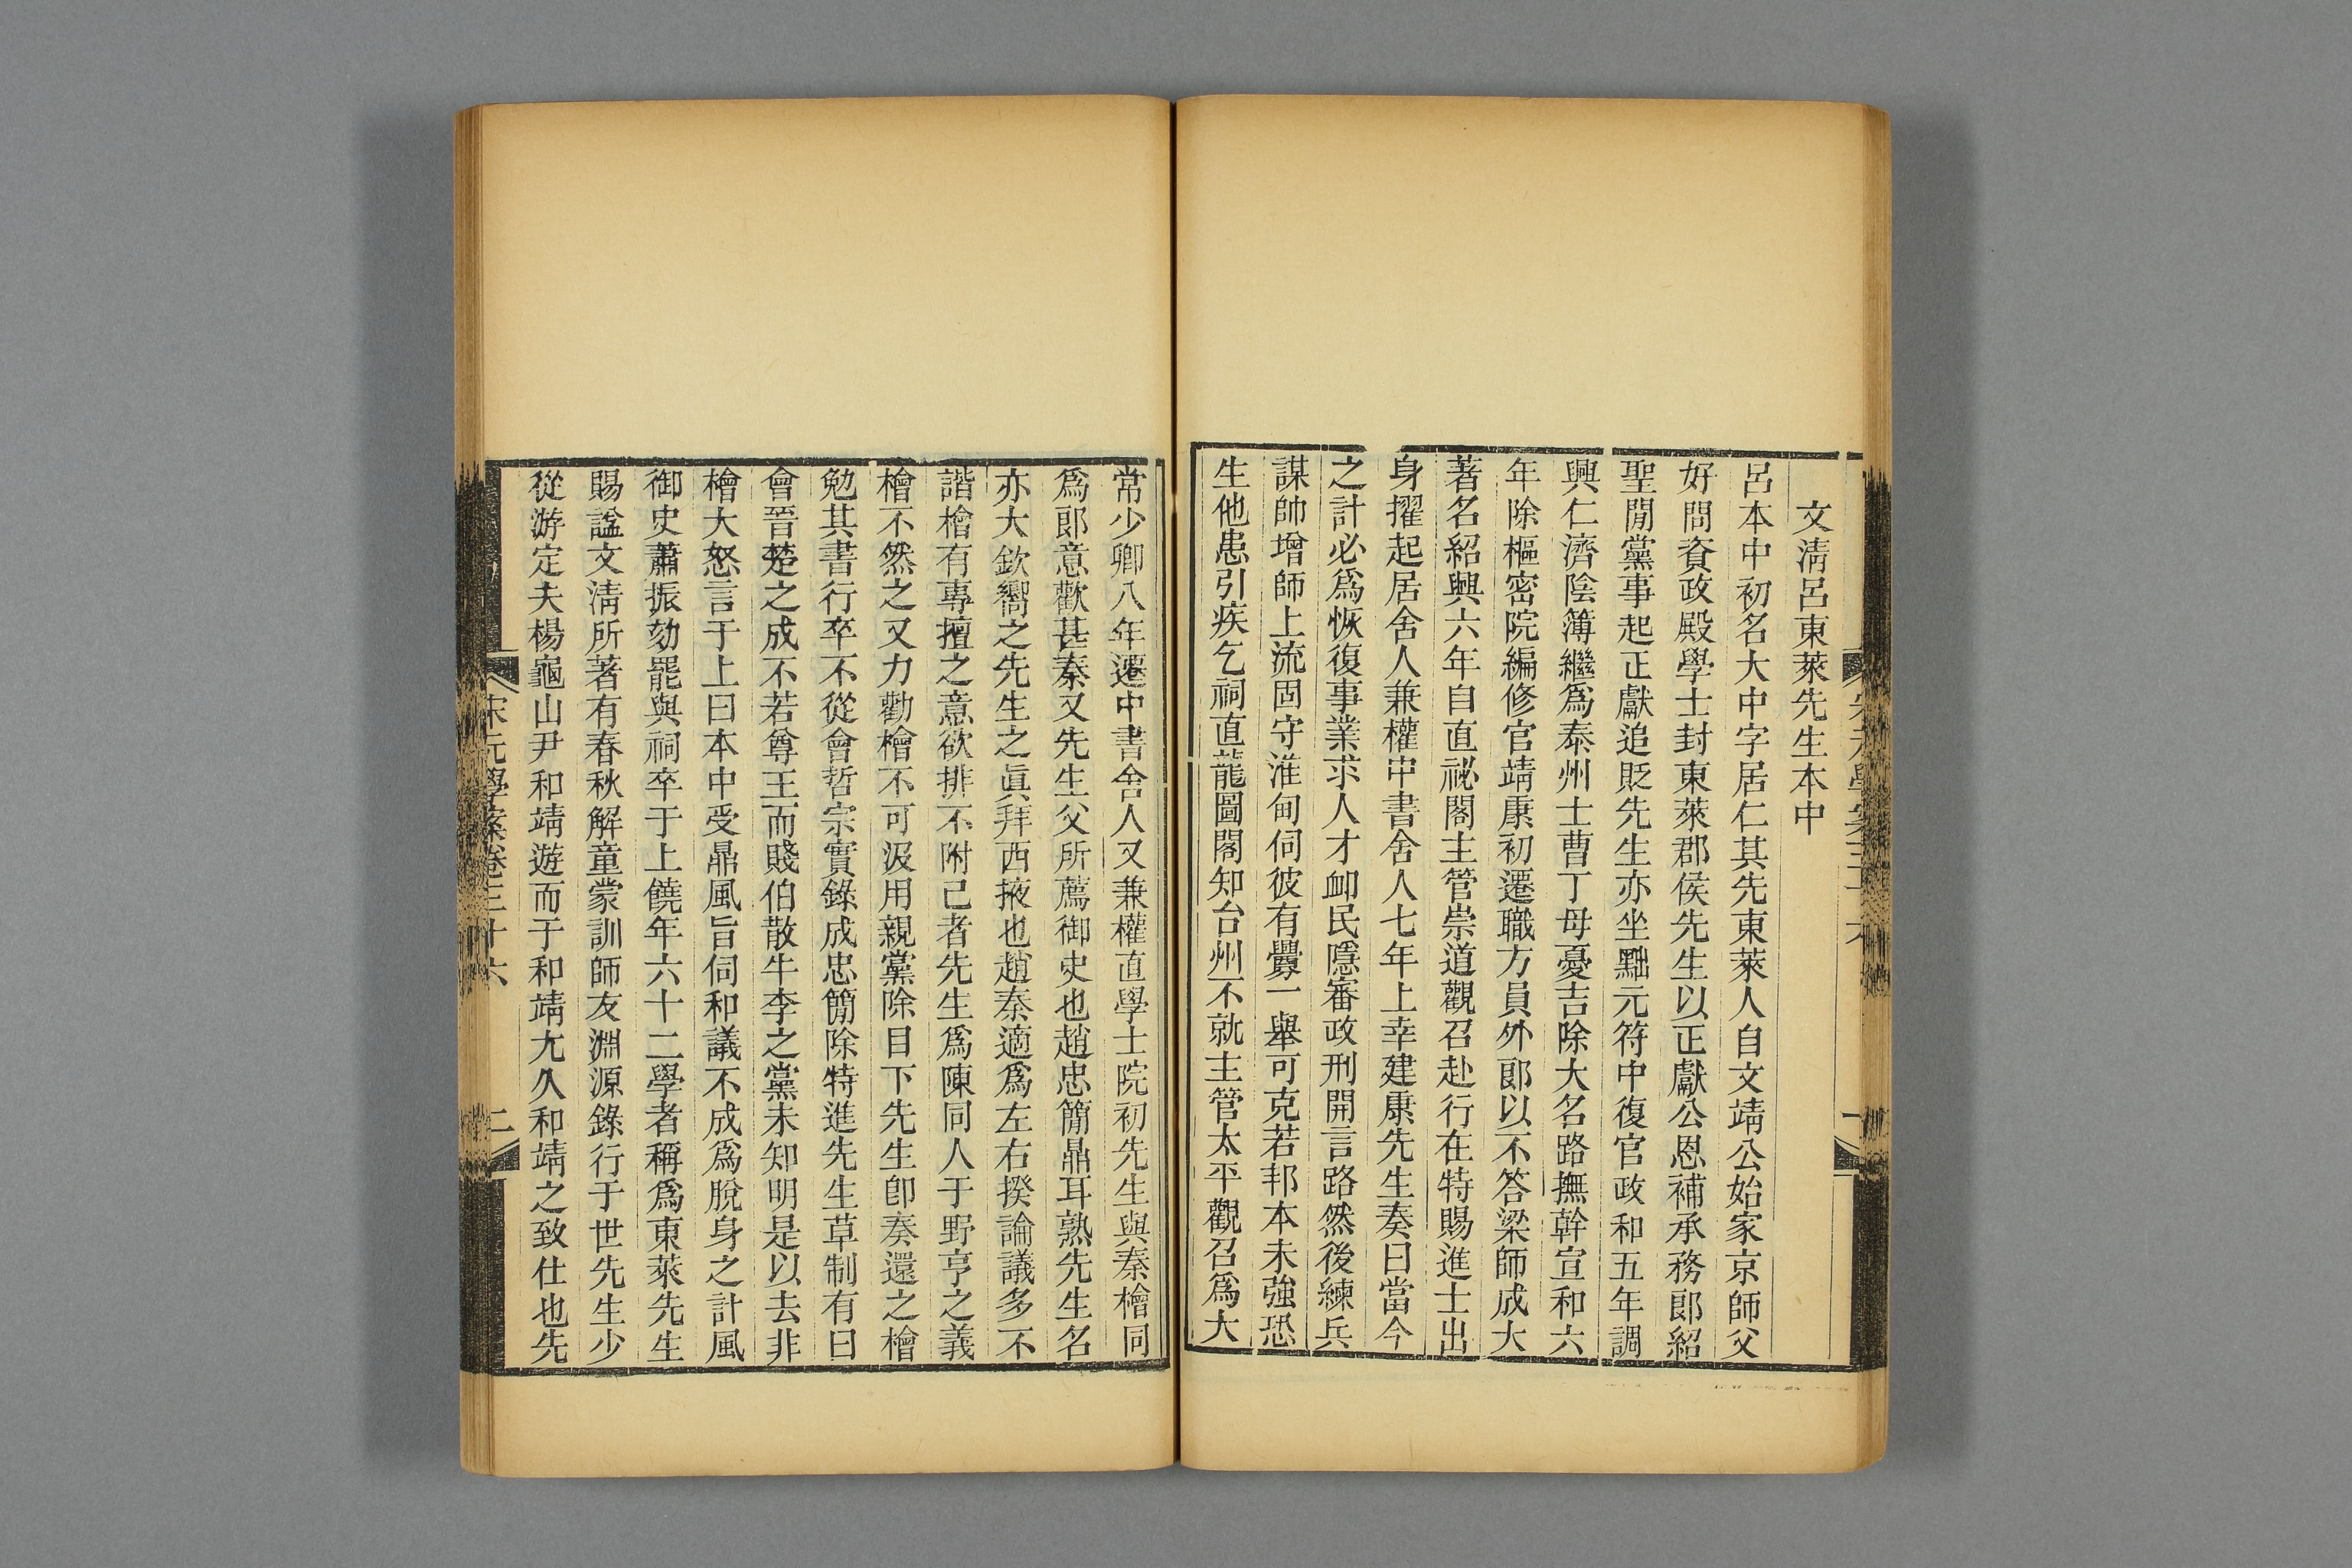 文淸呂東萊先生本中
呂本中初名大中字居仁其先東萊人自文靖公始家京師父
好問資政殿學士封東萊郡侯先生以正獻公恩補承務郞紹
聖閒黨事起正獻追貶先生亦坐黜元符中復官政和五年調
興仁濟陰簿繼爲泰州士曹丁母憂吉除大名路撫幹宣和六
年除樞密院編修官靖康初遷職方員外郞以不答梁師成大
著名紹興六年自直祕閣主管崇道觀召赴行在特賜進士出
身擢起居舍人兼權中書舍人七年上幸建康先生奏曰當今
之計必爲恢復事業求人才卹民隱審政刑開言路然後練兵
謀帥增師上流固守淮甸伺彼有釁一舉可克若邦本未強恐
生他患引疾乞祠直龍圖閣知台州不就主管太平觀召爲大
常少卿八年遷中書舍人又兼權直學士院初先生與秦檜同
爲郞意歡甚秦又先生父所薦御史也趙忠簡鼎耳熟先生名
亦大欽嚮之先生之眞拜西掖也趙秦適爲左右揆論議多不
諧檜有專擅之意欲排不附己者先生爲陳同人于野亨之義
檜不然之又力勸檜不可汲用親黨除目下先生卽奏還之檜
勉其書行卒不從會哲宗實錄成忠簡除特進先生草制有曰
會晉楚之成不若尊王而賤伯散牛李之黨未知明是以去非
檜大怒言于上曰本中受鼎風旨伺和議不成爲脫身之計風
御史蕭振劾罷與祠卒于上饒年六十二學者稱爲東萊先生
賜諡文淸所著有春秋解童蒙訓師友淵源錄行于世先生少
從游定夫楊龜山尹和靖遊而于和靖尤久和靖之致仕也先
宋元學案卷三十六
二